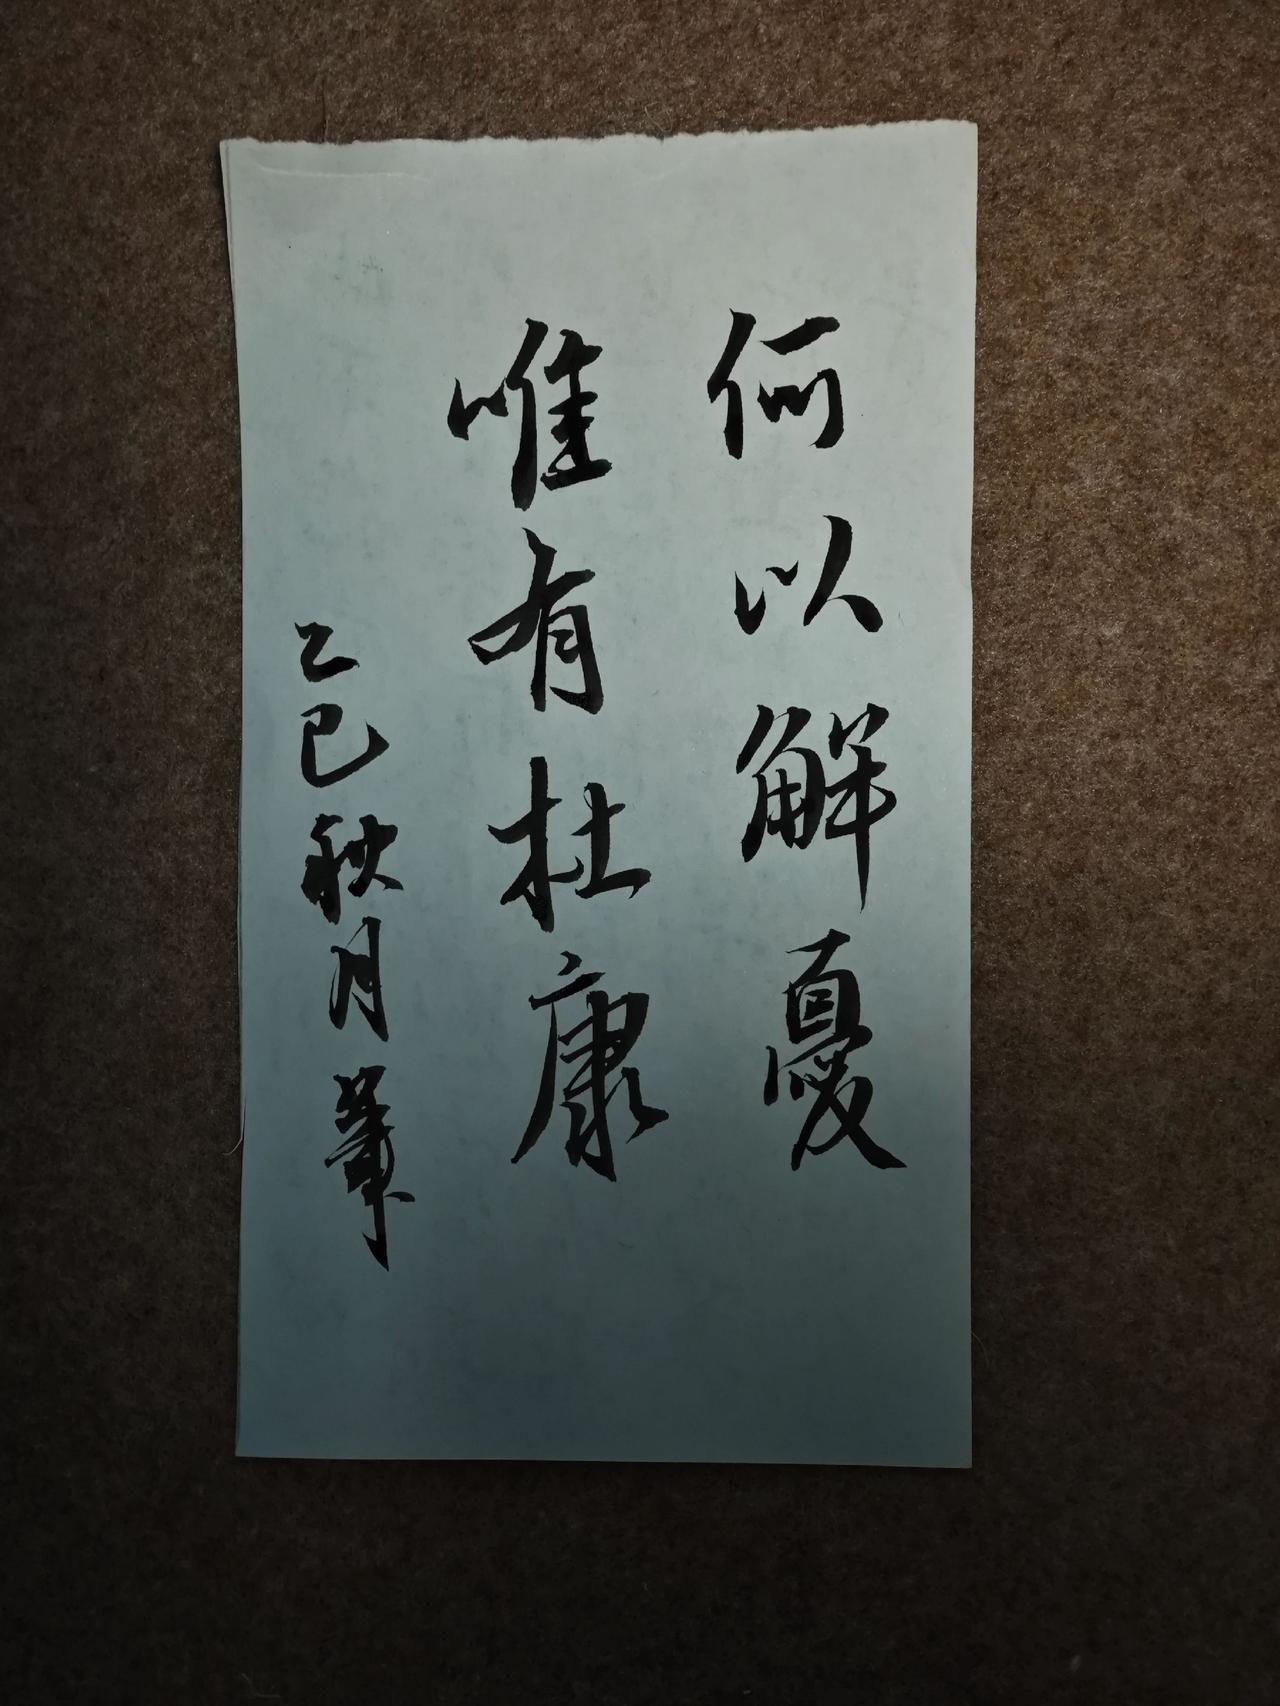 何以解憂
唯有杜康
乙巳秋月